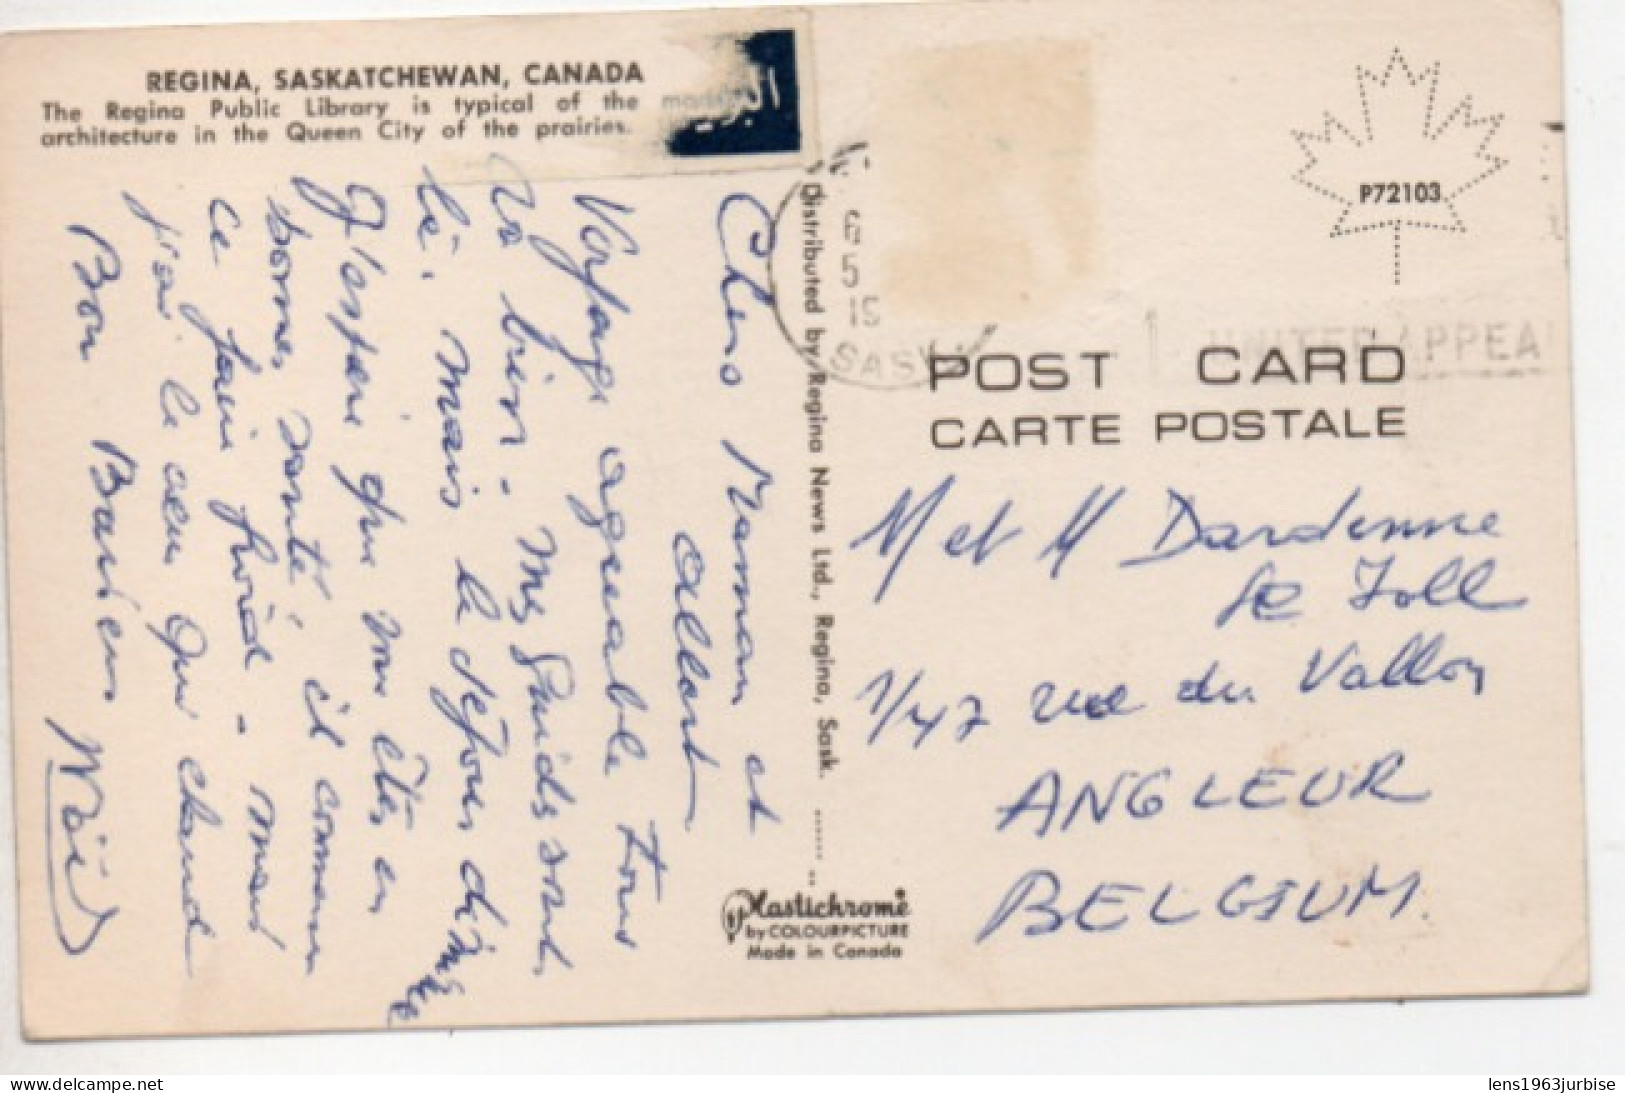 REGINA, SASKATCHEWAN, CANADA
The Regina Public Library is typical of the
architecture in the Queen City of the prairies.
البريد
Chers Maman et
Albert
Voyage agreable tous
va bien - mes guides sont
là, mais le séjour dé
J'espère que vous êtes en
bonne santé, il commence
ce fain froid - mais
j'ai le cœur qui chaud
Bon Baisers
P72103
5
15
SASK
UNITED APPEAL
POST CARD
CARTE POSTALE
M et M Dardenne
1/47 rue du Vallon
ANGLEUR
BELGIUM.
Distributed by Regina News Ltd., Regina, Sask.
Plastichrome
by COLOURPICTURE
Made in Canada
lens1963jurbise